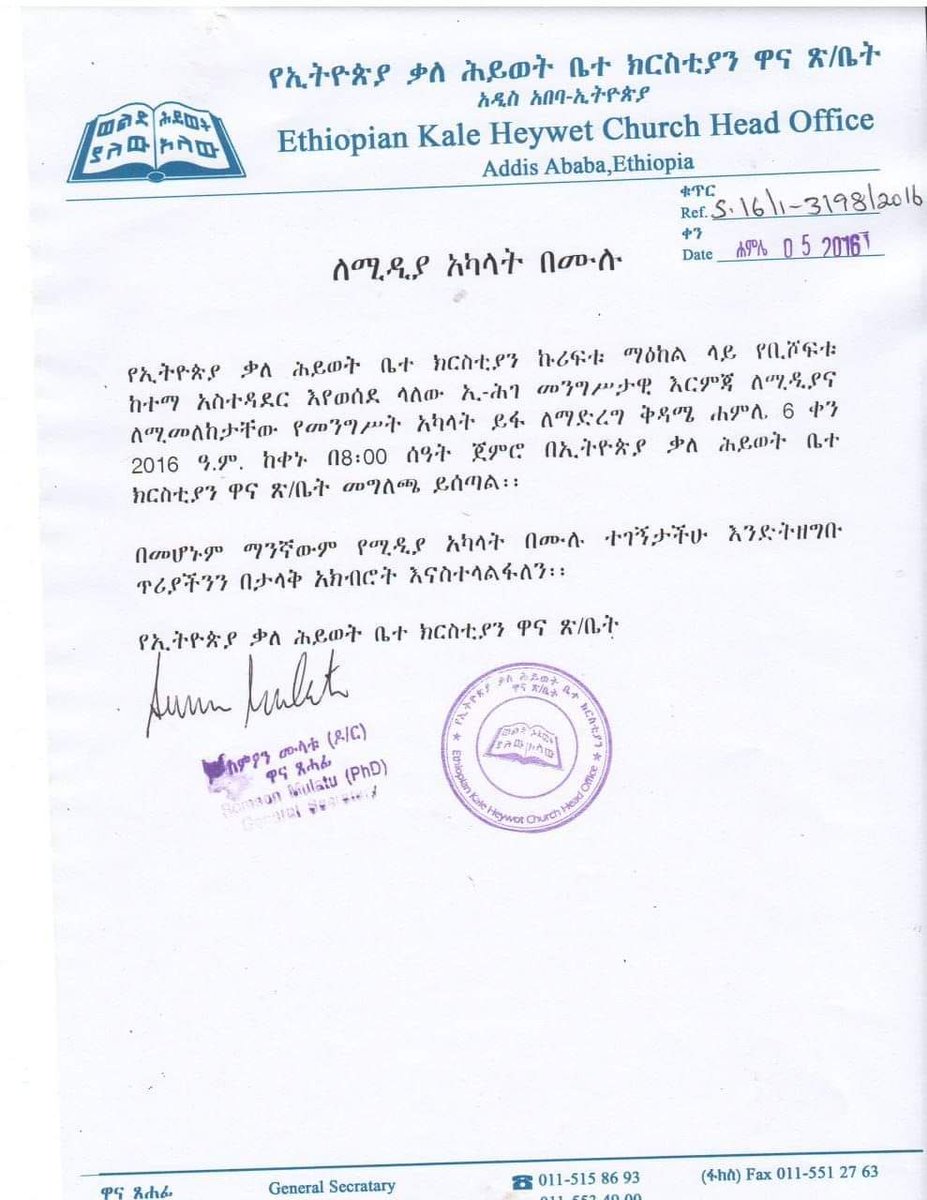 የኢትዮጵያ ቃለ ሕይወት ቤተ ክርስቲያን ዋና ጽ/ቤት
አዲስ አበባ-ኢትዮጵያ
Ethiopian Kale Heywet Church Head Office
Addis Ababa,Ethiopia
ወልድ ሕይወት
ያለው አለው
ቁጥር
Ref. S.16/1-3198/2016
ቀን
Date ሐምሌ 05 2016
ለሚዲያ አካላት በሙሉ
የኢትዮጵያ ቃለ ሕይወት ቤተ ክርስቲያን ኩሪፍቱ ማዕከል ላይ የቢሾፍቱ
ከተማ አስተዳደር እየወሰደ ላለው ኢ-ሕገ መንግሥታዊ እርምጃ ለሚዲያና
ለሚመለከታቸው የመንግሥት አካላት ይፋ ለማድረግ ቅዳሜ ሐምሌ 6 ቀን
2016 ዓ.ም. ከቀኑ በ8፡00 ሰዓት ጀምሮ በኢትዮጵያ ቃለ ሕይወት ቤተ
ክርስቲያን ዋና ጽ/ቤት መግለጫ ይሰጣል፡፡
በመሆኑም ማንኛውም የሚዲያ አካላት በሙሉ ተገኝታችሁ እንድትዘግቡ
ጥሪያችንን በታላቅ አክብሮት እናስተላልፋለን፡፡
የኢትዮጵያ ቃለ ሕይወት ቤተ ክርስቲያን ዋና ጽ/ቤት
ስምዖን ሙላቱ (ዶ/ር)
ዋና ጸሐፊ
Simeon Mulatu (PhD)
General Secretary
የኢትዮጵያ ቃለ ሕይወት ቤተ ክርስቲያን
ዋና ጽ/ቤት
Ethiopian Kale Heywet Church Head Office
ዋና ጸሐፊ General Secratary ☎ 011-515 86 93 (ፋክስ) Fax 011-551 27 63